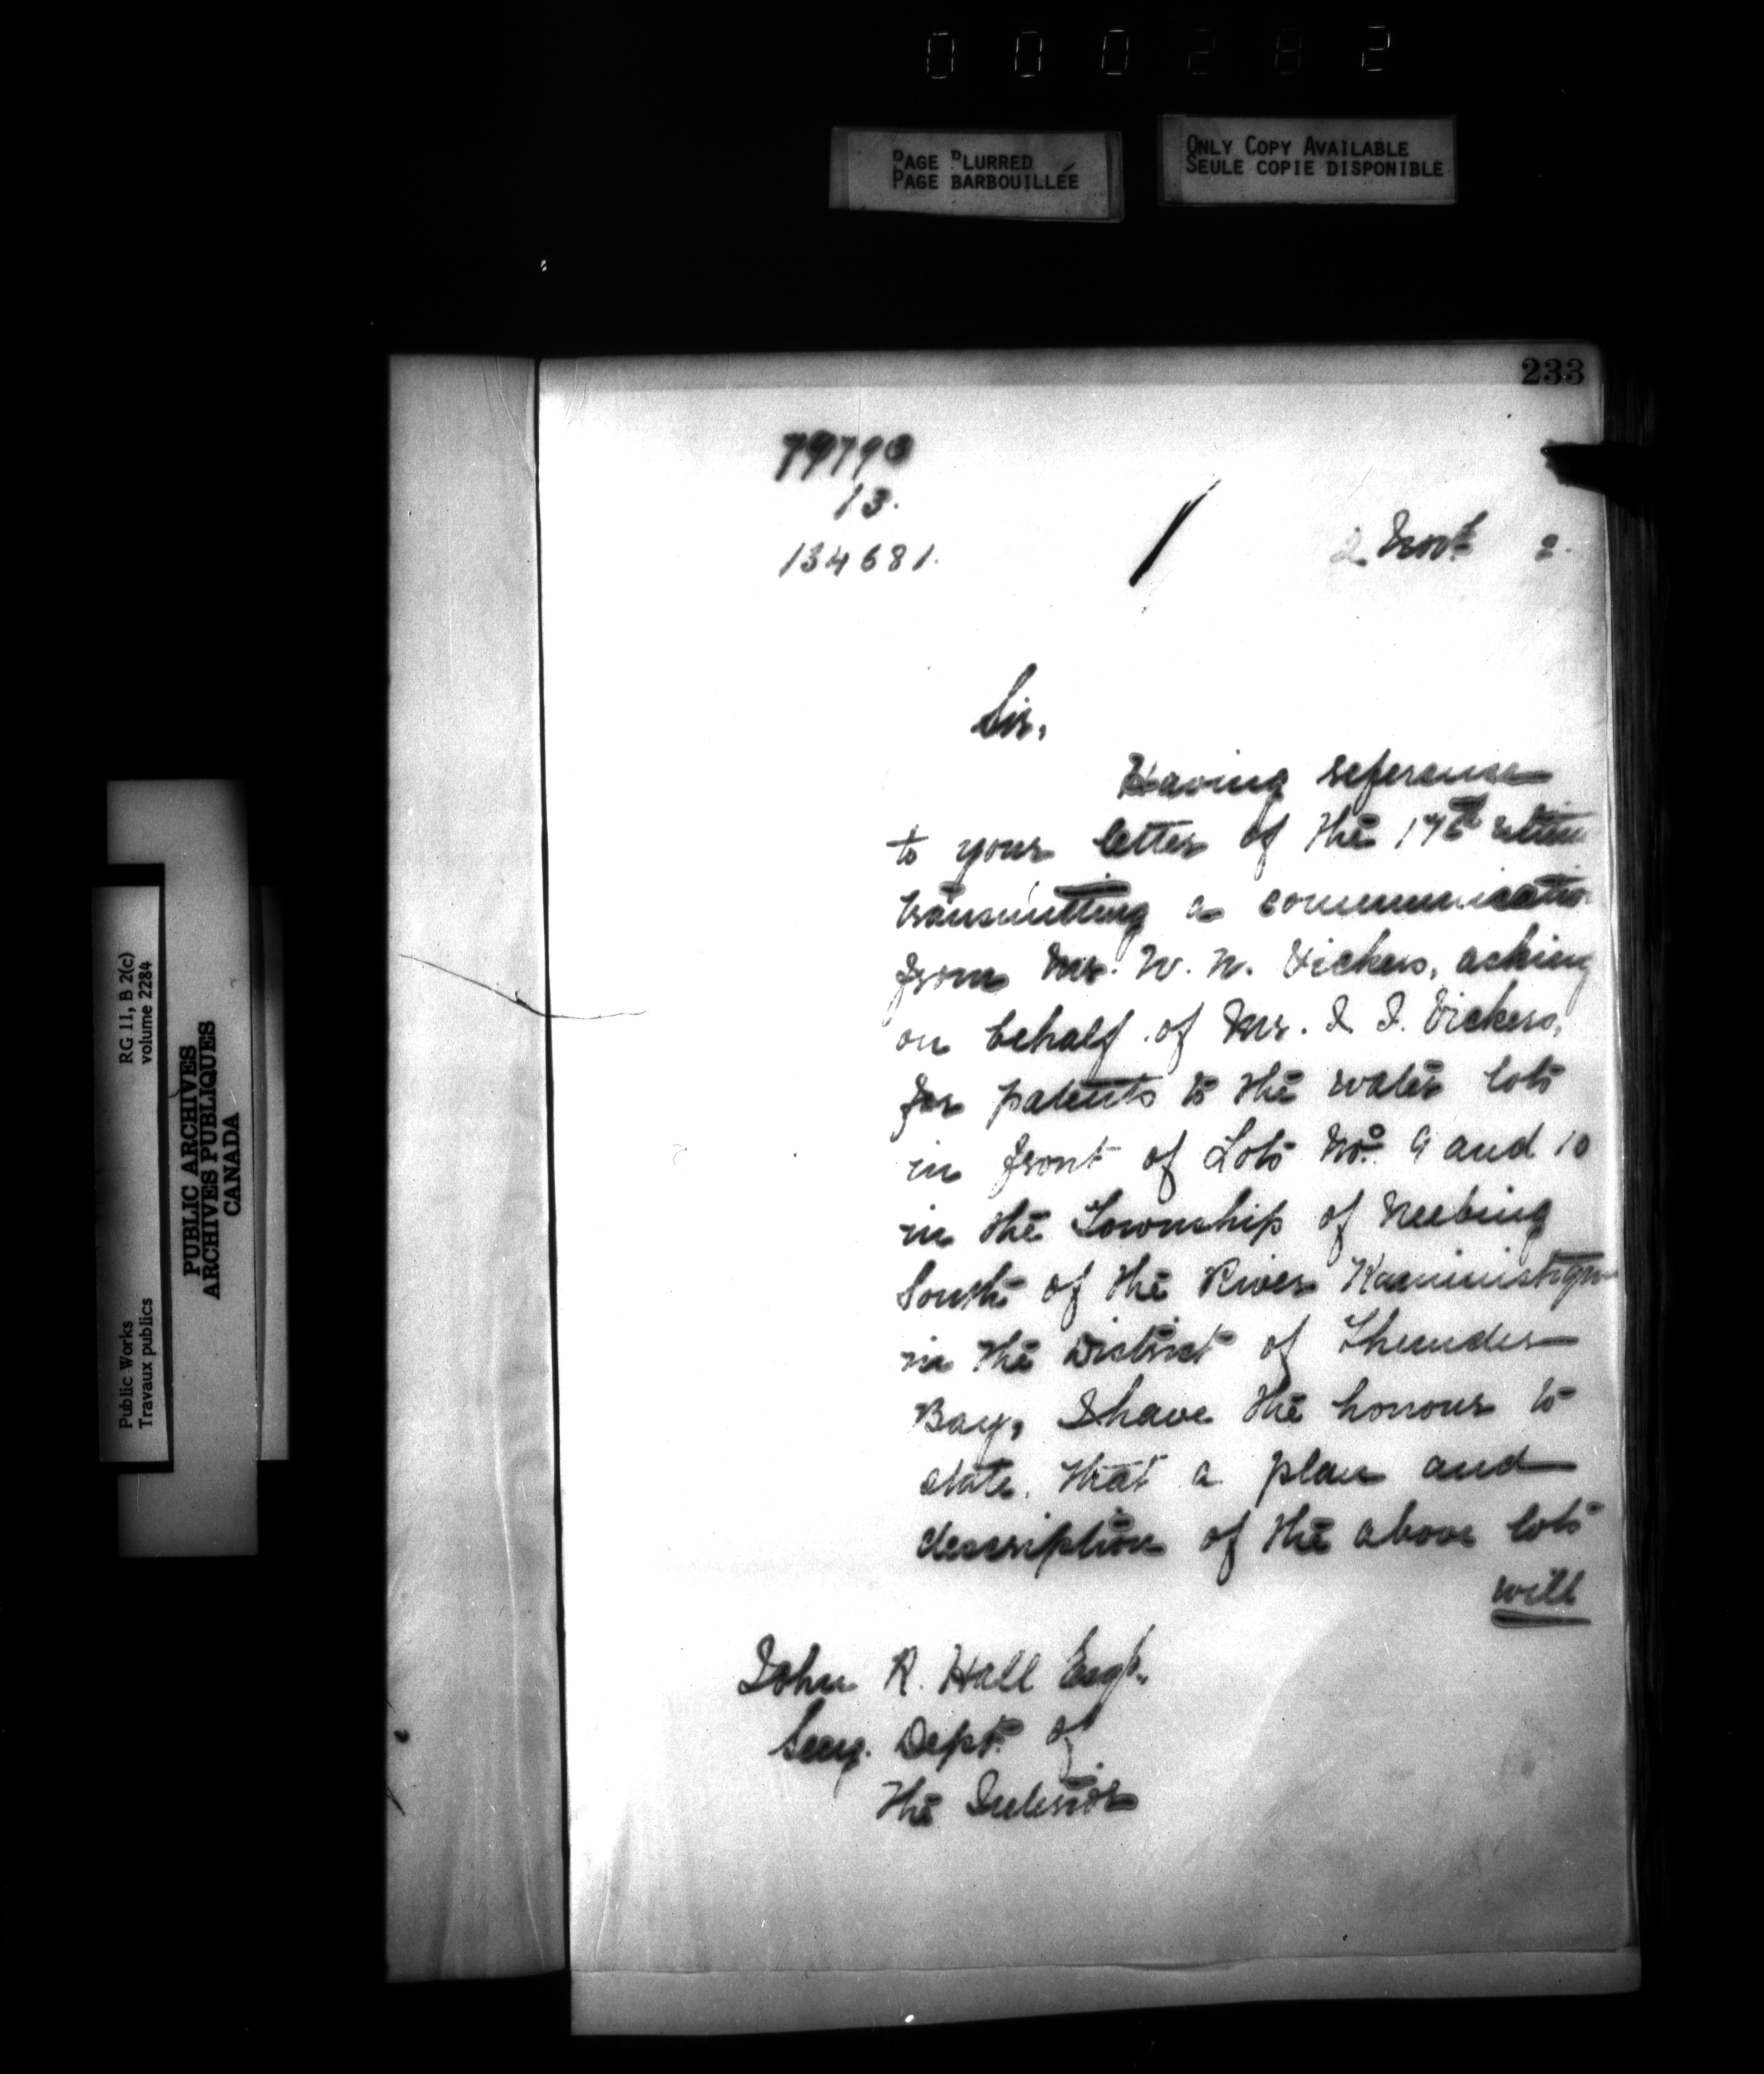 000282
PAGE BLURRED
PAGE BARBOUILLÉE
ONLY COPY AVAILABLE
SEULE COPIE DISPONIBLE
233
13.
134681.
2 Novr. 2.
Sir,
Having reference
to your letter of the 17th
transmitting a communicatio
from Mr. W. W. Vickers, asking
on behalf of Mr. J. J. Vickers,
for patents to the water lots
in front of Lots No. 9 and 10
in the Township of Neebing
South of the River Kaministiqu
in the District of Thunder
Bay, I have the honour to
state that a plan and
description of the above lots
will
John R. Hall Esqr.
Secy. Dept. of
The Interior
Public Works
Travaux publics
RG 11, B 2(c)
volume 2284
PUBLIC ARCHIVES
ARCHIVES PUBLIQUES
CANADA